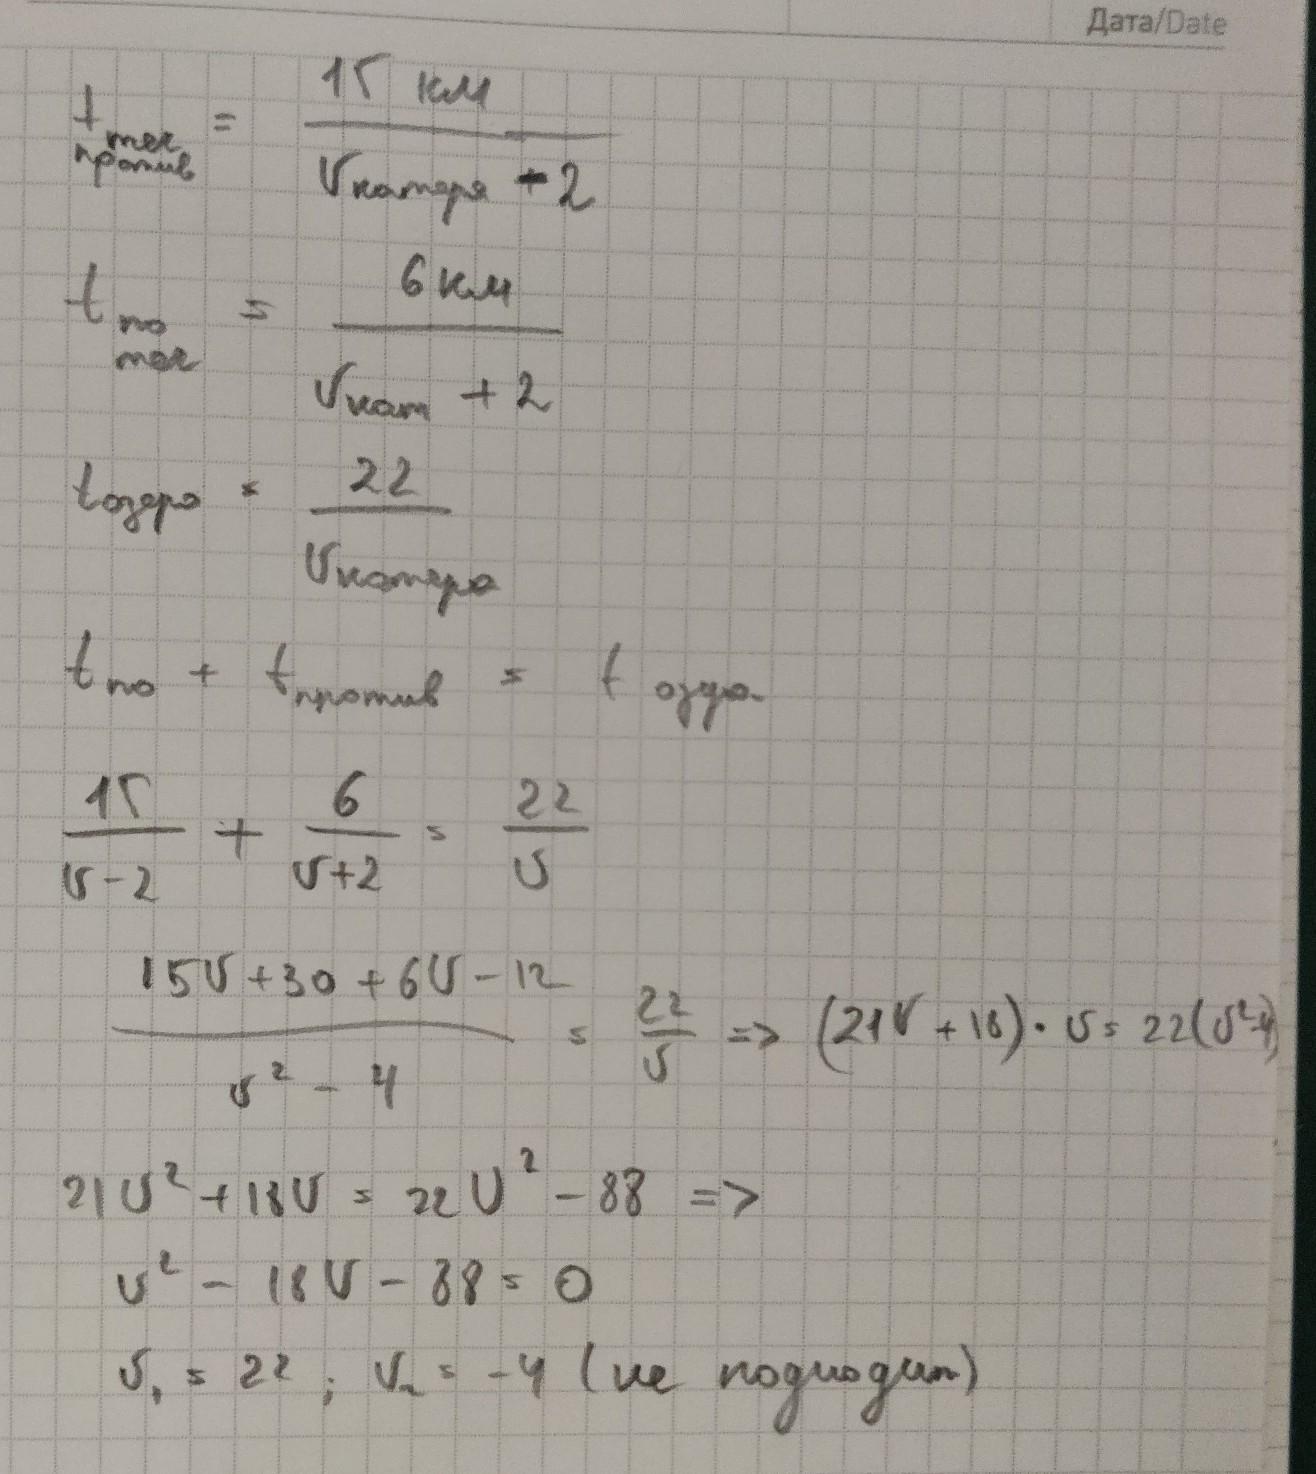 Дата/Date
t теч против = 15 км / Vкатера - 2
t по теч = 6 км / Vкат + 2
t озеро = 22 / Vкатера
t по + t против = t озера
15 / v-2 + 6 / v+2 = 22 / v
15v+30+6v-12 / v² - 4 = 22 / v => (21v+18)·v = 22(v²-4)
21v²+18v = 22v²-88 =>
v² - 18v - 88 = 0
v₁ = 22 ; v₂ = -4 (не подходит)